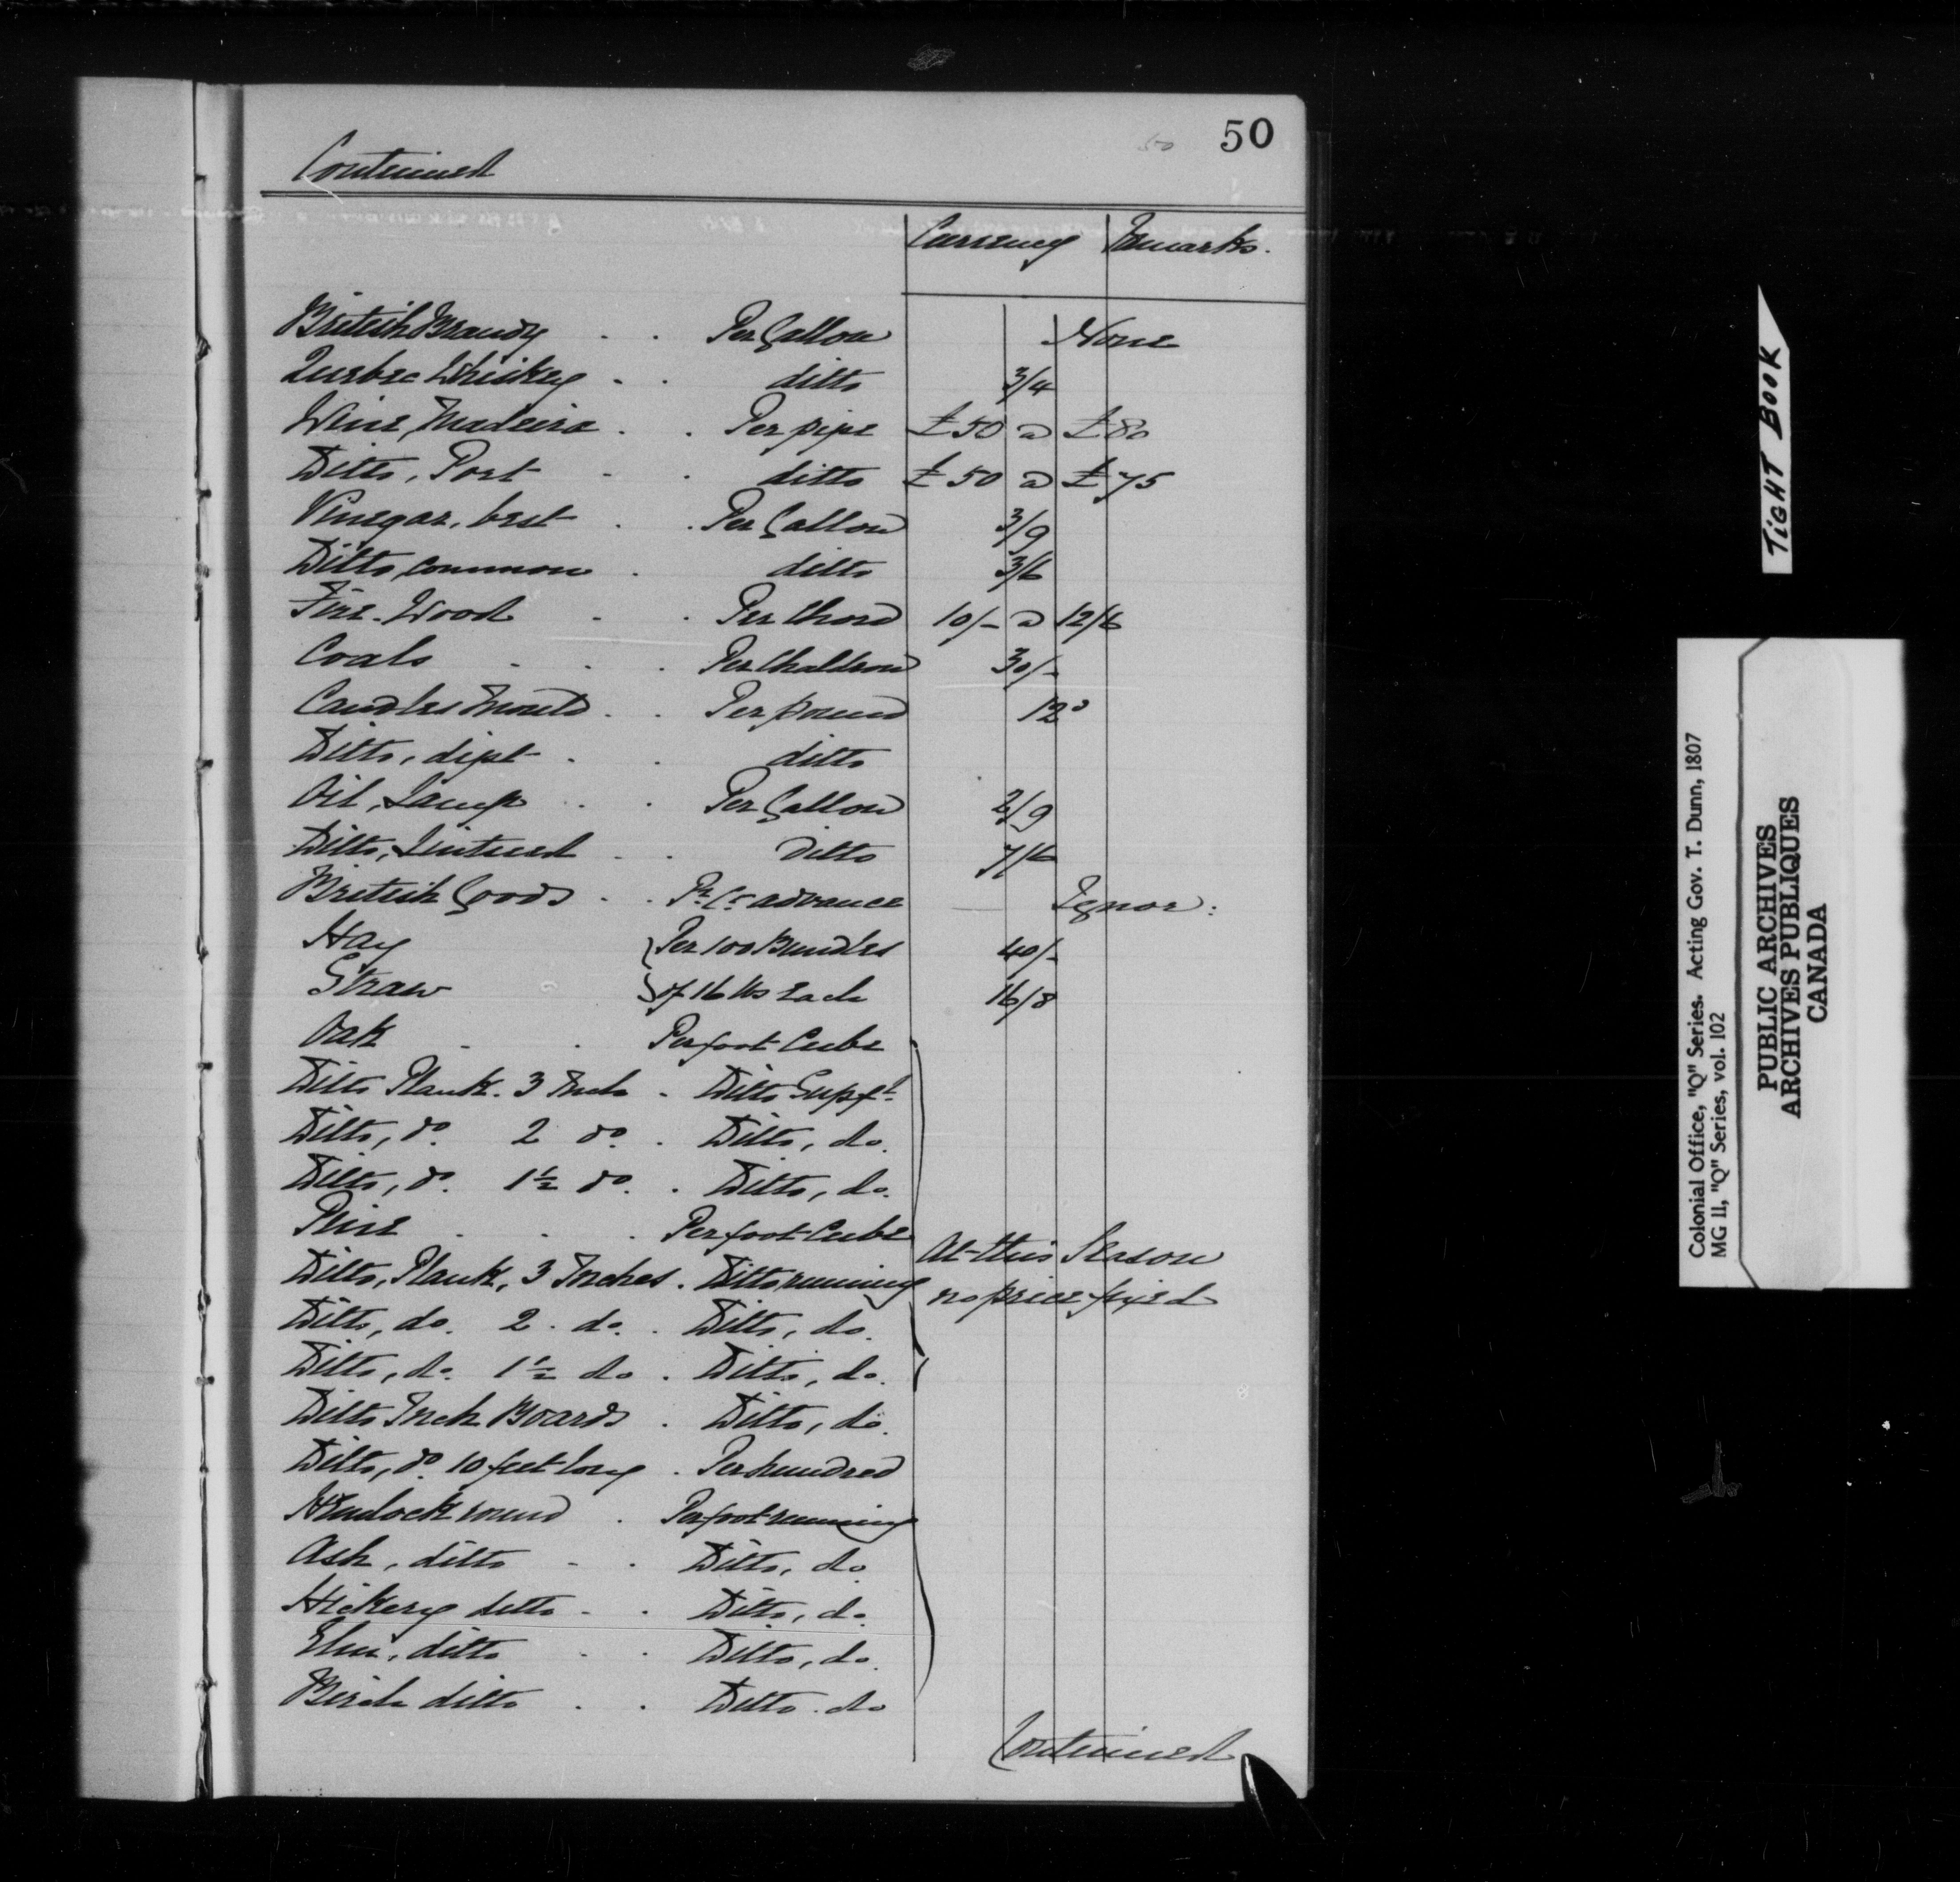 50
Continued
Currency Remarks.
British Brandy . . Per Gallon None
Quebec Whiskey . . ditto 3/4
Wine, Madeira . . Per pipe £50 a £80
Ditto, Port . . ditto £50 a £75
Vinegar, best . . Per Gallon 3/9
Ditto, common . ditto 3/6
Fire-Wood . . Per Chord 10/- a 12/6
Coals . . . Per Chaldron 30/-
Candles Mould . . Per pound 12d
Ditto, dipt . . ditto
Oil, Lamp . . Per Gallon 2/9
Ditto, Lintseed . . Ditto 7/6
British Goods . . Pr. Ct. advance Ignor:
Hay } Per 100 Bundles 40/-
Straw } of 16 lbs each 16/8
Oak . . Per foot Cube
Ditto Plank. 3 Inch . Ditto Supfl.
Ditto, do. 2 do. . Ditto, do.
Ditto, do. 1½ do. . Ditto, do.
Pine . . . Per foot Cube
Ditto, Plank, 3 Inches . Ditto running
At this Season
no price fixed
Ditto, do. 2 . do. . Ditto, do.
Ditto, do. 1½ do . Ditto, do.
Ditto Inch Boards . Ditto, do.
Ditto, do. 10 feet long . Per hundred
Hemlock round . Per foot running
Ash, ditto . . Ditto, do.
Hickery ditto . . Ditto, do.
Elm, ditto . . Ditto, do.
Birch ditto . . Ditto . do
Continued
TIGHT BOOK
Colonial Office, "Q" Series. Acting Gov. T. Dunn, 1807
MG 11, "Q" Series, vol. 102
PUBLIC ARCHIVES
ARCHIVES PUBLIQUES
CANADA